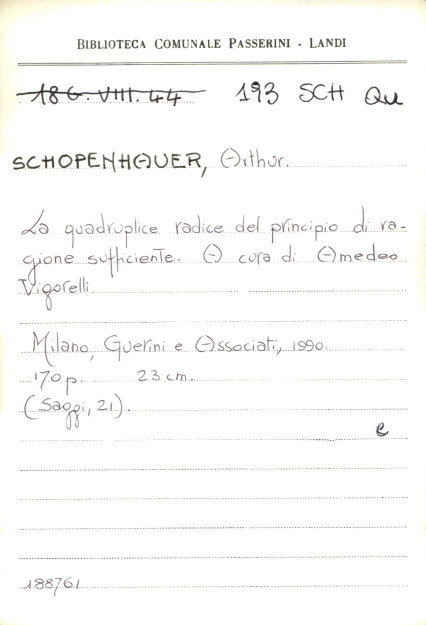 BIBLIOTECA COMUNALE PASSERINI - LANDI
18 G. VIII. 44 193 SCH Qu
SCHOPENHAUER, Arthur.
La quadruplice radice del principio di ra-
gione sufficiente. A cura di Amedeo
Vigorelli
Milano, Guerini e Associati, 1990.
170 p. 23 cm.
(Saggi, 21).
e
188761